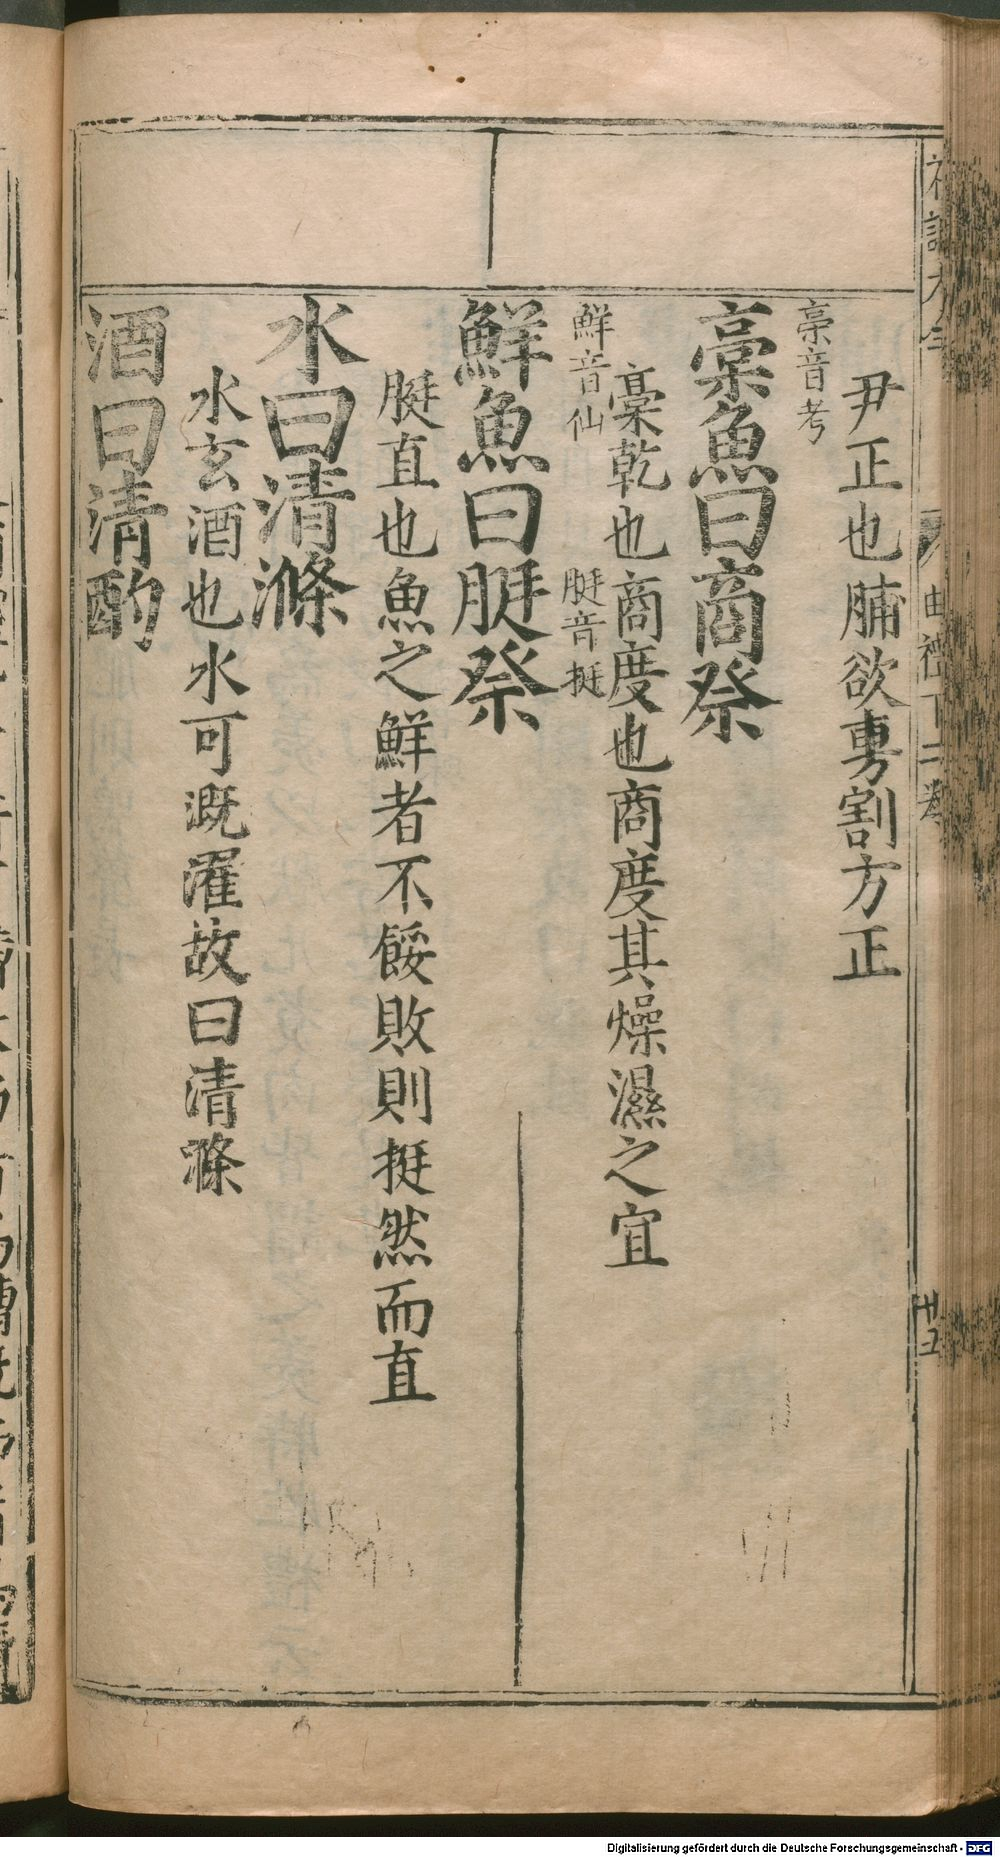 尹正也脯欲專割方正
槀音考
槀魚曰商祭
槀乾也商度也商度其燥濕之宜
鮮音仙
脡音挺
鮮魚曰脡祭
脡直也魚之鮮者不餒敗則挺然而直
水曰清滌
水玄酒也水可溉濯故曰清滌
酒曰清酌
曲禮下二卷
Digitalisierung gefördert durch die Deutsche Forschungsgemeinschaft - DFG